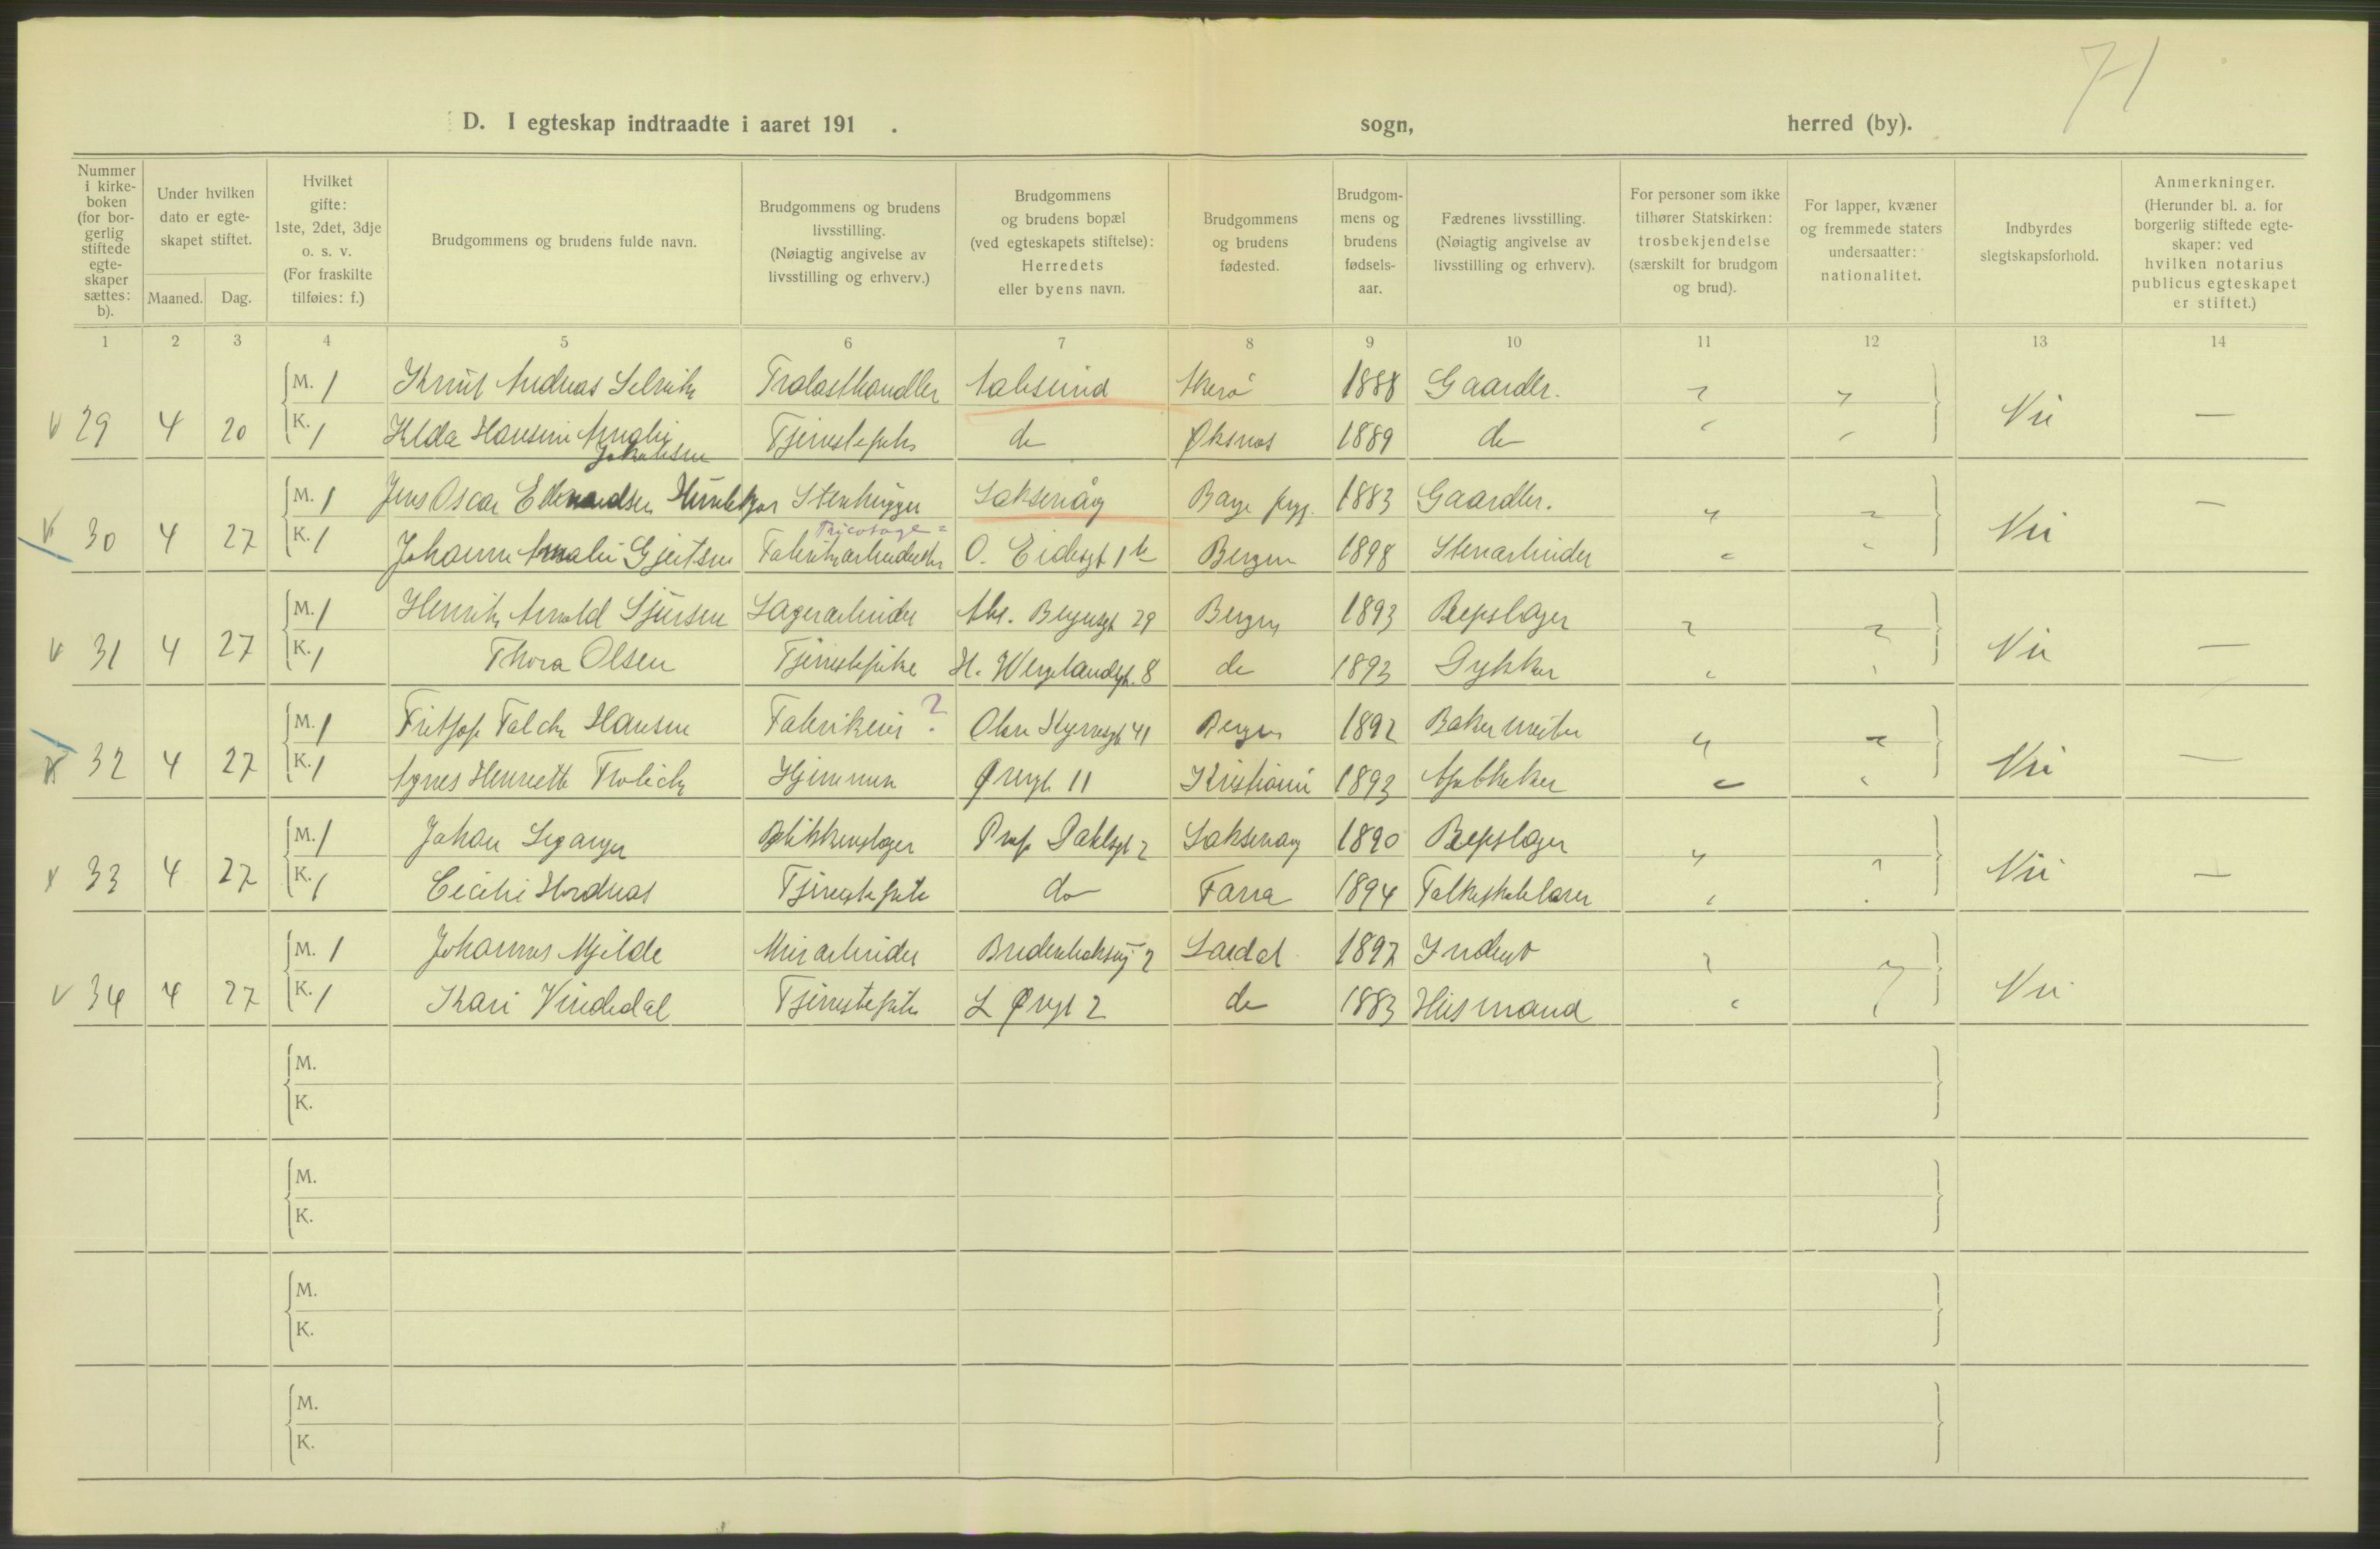 71
D. I egteskap indtraadte i aaret 191 . sogn, herred (by).
Nummer i kirke-boken (for bor-gerlig stiftede egte-skaper sættes: b).
Under hvilken dato er egte-skapet stiftet.
Maaned. Dag.
Hvilket gifte: 1ste, 2det, 3dje o. s. v. (For fraskilte tilføies: f.)
Brudgommens og brudens fulde navn.
Brudgommens og brudens livsstilling. (Nøiagtig angivelse av livsstilling og erhverv.)
Brudgommens og brudens bopæl (ved egteskapets stiftelse): Herredets eller byens navn.
Brudgommens og brudens fødested.
Brudgom-mens og brudens fødsels-aar.
Fædrenes livsstilling. (Nøiagtig angivelse av livsstilling og erhverv).
For personer som ikke tilhører Statskirken: trosbekjendelse (særskilt for brudgom og brud).
For lapper, kvæner og fremmede staters undersaatter: nationalitet.
Indbyrdes slegtskapsforhold.
Anmerkninger. (Herunder bl. a. for borgerlig stiftede egte-skaper: ved hvilken notarius publicus egteskapet er stiftet.)
1 2 3 4 5 6 7 8 9 10 11 12 13 14
M. 1 Knut Andreas Selvik Trælasthandler Aalesund Akerø 1888 Gaardbr.
29 4 20 K. 1 Hansine Amalie Jakobsen Tjenestepike do Øksnes 1889 do Nei —
M. 1 Jens Oscar Stenhugger Laksevåg 1883 Gaardbr.
Tricotage=
30 4 27 K. 1 Johanne Amalie Gjertsen Fabrikarbeiderske Bergen 1898 Stenarbeider Nei —
M. 1 Henrik Arnold Sjursen Lagerarbeider 29 Bergen 1893 Repslager
31 4 27 K. 1 Thora Olsen Tjenestepike H. Wergelandsgt. 8 do 1893 Dykker Nei —
M. 1 Fritjof Falch Hansen Fabrikeier ? Olav Kyrresgt 41 Bergen 1892 Bakermester
32 4 27 K. 1 Agnes Henriette Frølich Hjemme Øvregt 11 Kristiania 1893 Apotheker Nei —
M. 1 Johan Blikkenslager Prof Dahlsgt 2 Laksevaag 1890 Repslager
33 4 27 K. 1 Cecilie Hordnes Tjenestepike do Fana 1894 Folkeskolelærer Nei —
M. 1 Johannes Mjelde Murarbeider 2 Lærdal 1892 Inderst
34 4 27 K. 1 Kari Vindedal Tjenestepike L Øvregt 2 do 1883 Husmand Nei
M.
K.
M.
K.
M.
K.
M.
K.